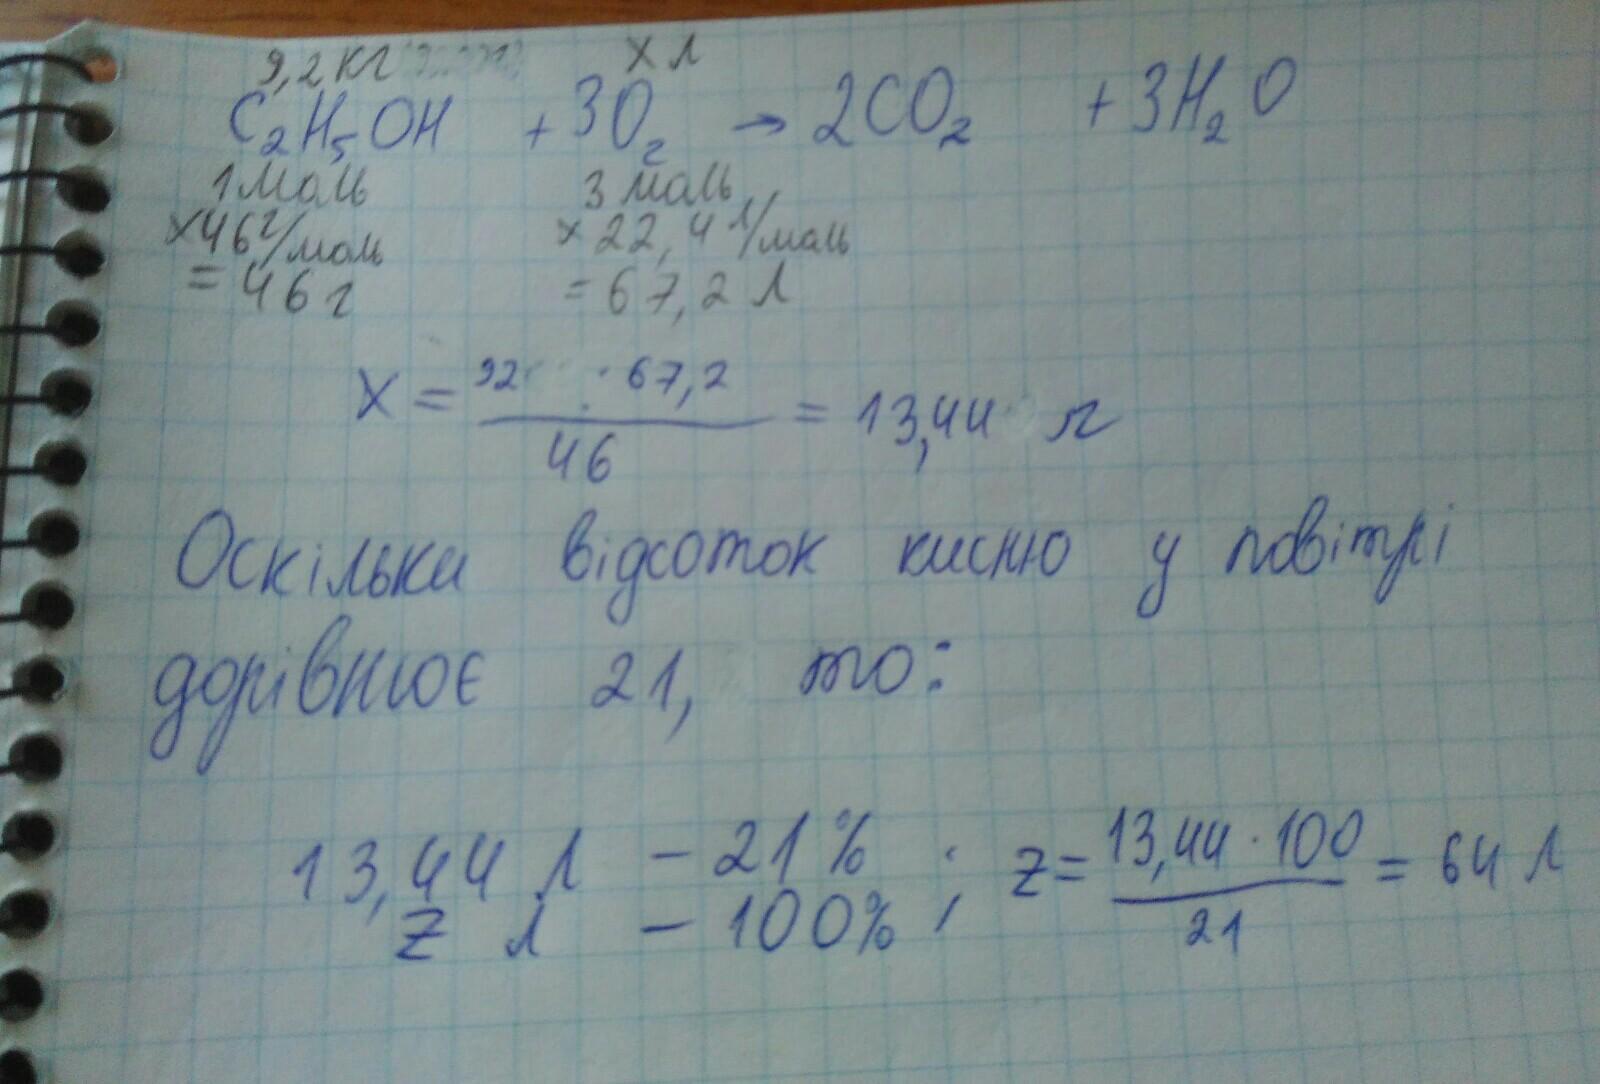 9,2 кг x л
C₂H₅OH + 3O₂ → 2CO₂ + 3H₂O
1 моль 3 моль
×46 г/моль × 22,4 л/моль
= 46 г = 67,2 л
X = 92 · 67,2 / 46 = 13,44 л
Оскільки відсоток кисню у повітрі
дорівнює 21, то:
13,44 л – 21% ; z = 13,44 · 100 / 21 = 64 л
z л – 100%